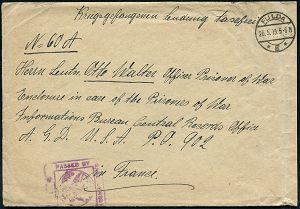 Kriegsgefangenen Sendung taxefrei
FULDA
26.5.19.5-6N
No 60 A
Herrn Leutn. Otto Walter Officer Prisoner of War
Enclosure in care of the Prisoners of War
Informations Bureau Central Records Office
A.G.D. U.S.A. P.O. 902
in France.
PASSED BY